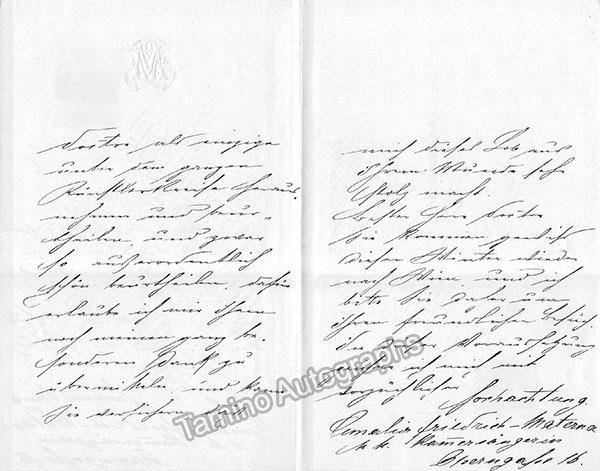 M
Doctor als einzige
unter dem ganzen
Künstlerkreise heraus-
nehmen und beur-
theilen, und zwar
so außerordentlich
schön beurtheilen, dafür
erlaube ich mir Ihnen
noch meinen ganz be-
sonderen Dank zu
übermitteln und kann
Sie versichern, daß
mich dieses Lob aus
Ihrem Munde sehr
stolz macht.
Bester Herr Doctor
Sie kommen gewiß
diesen Winter wieder
nach Wien, und ich
bitte Sie daher um
Ihren freundlichen Besuch.
In dieser Voraussetzung
ich mich mit
vorzüglicher
Hochachtung
Amalie Friedrich-Materna
k.k. Kammersängerin
Operngasse 16.
Tamino Autographs